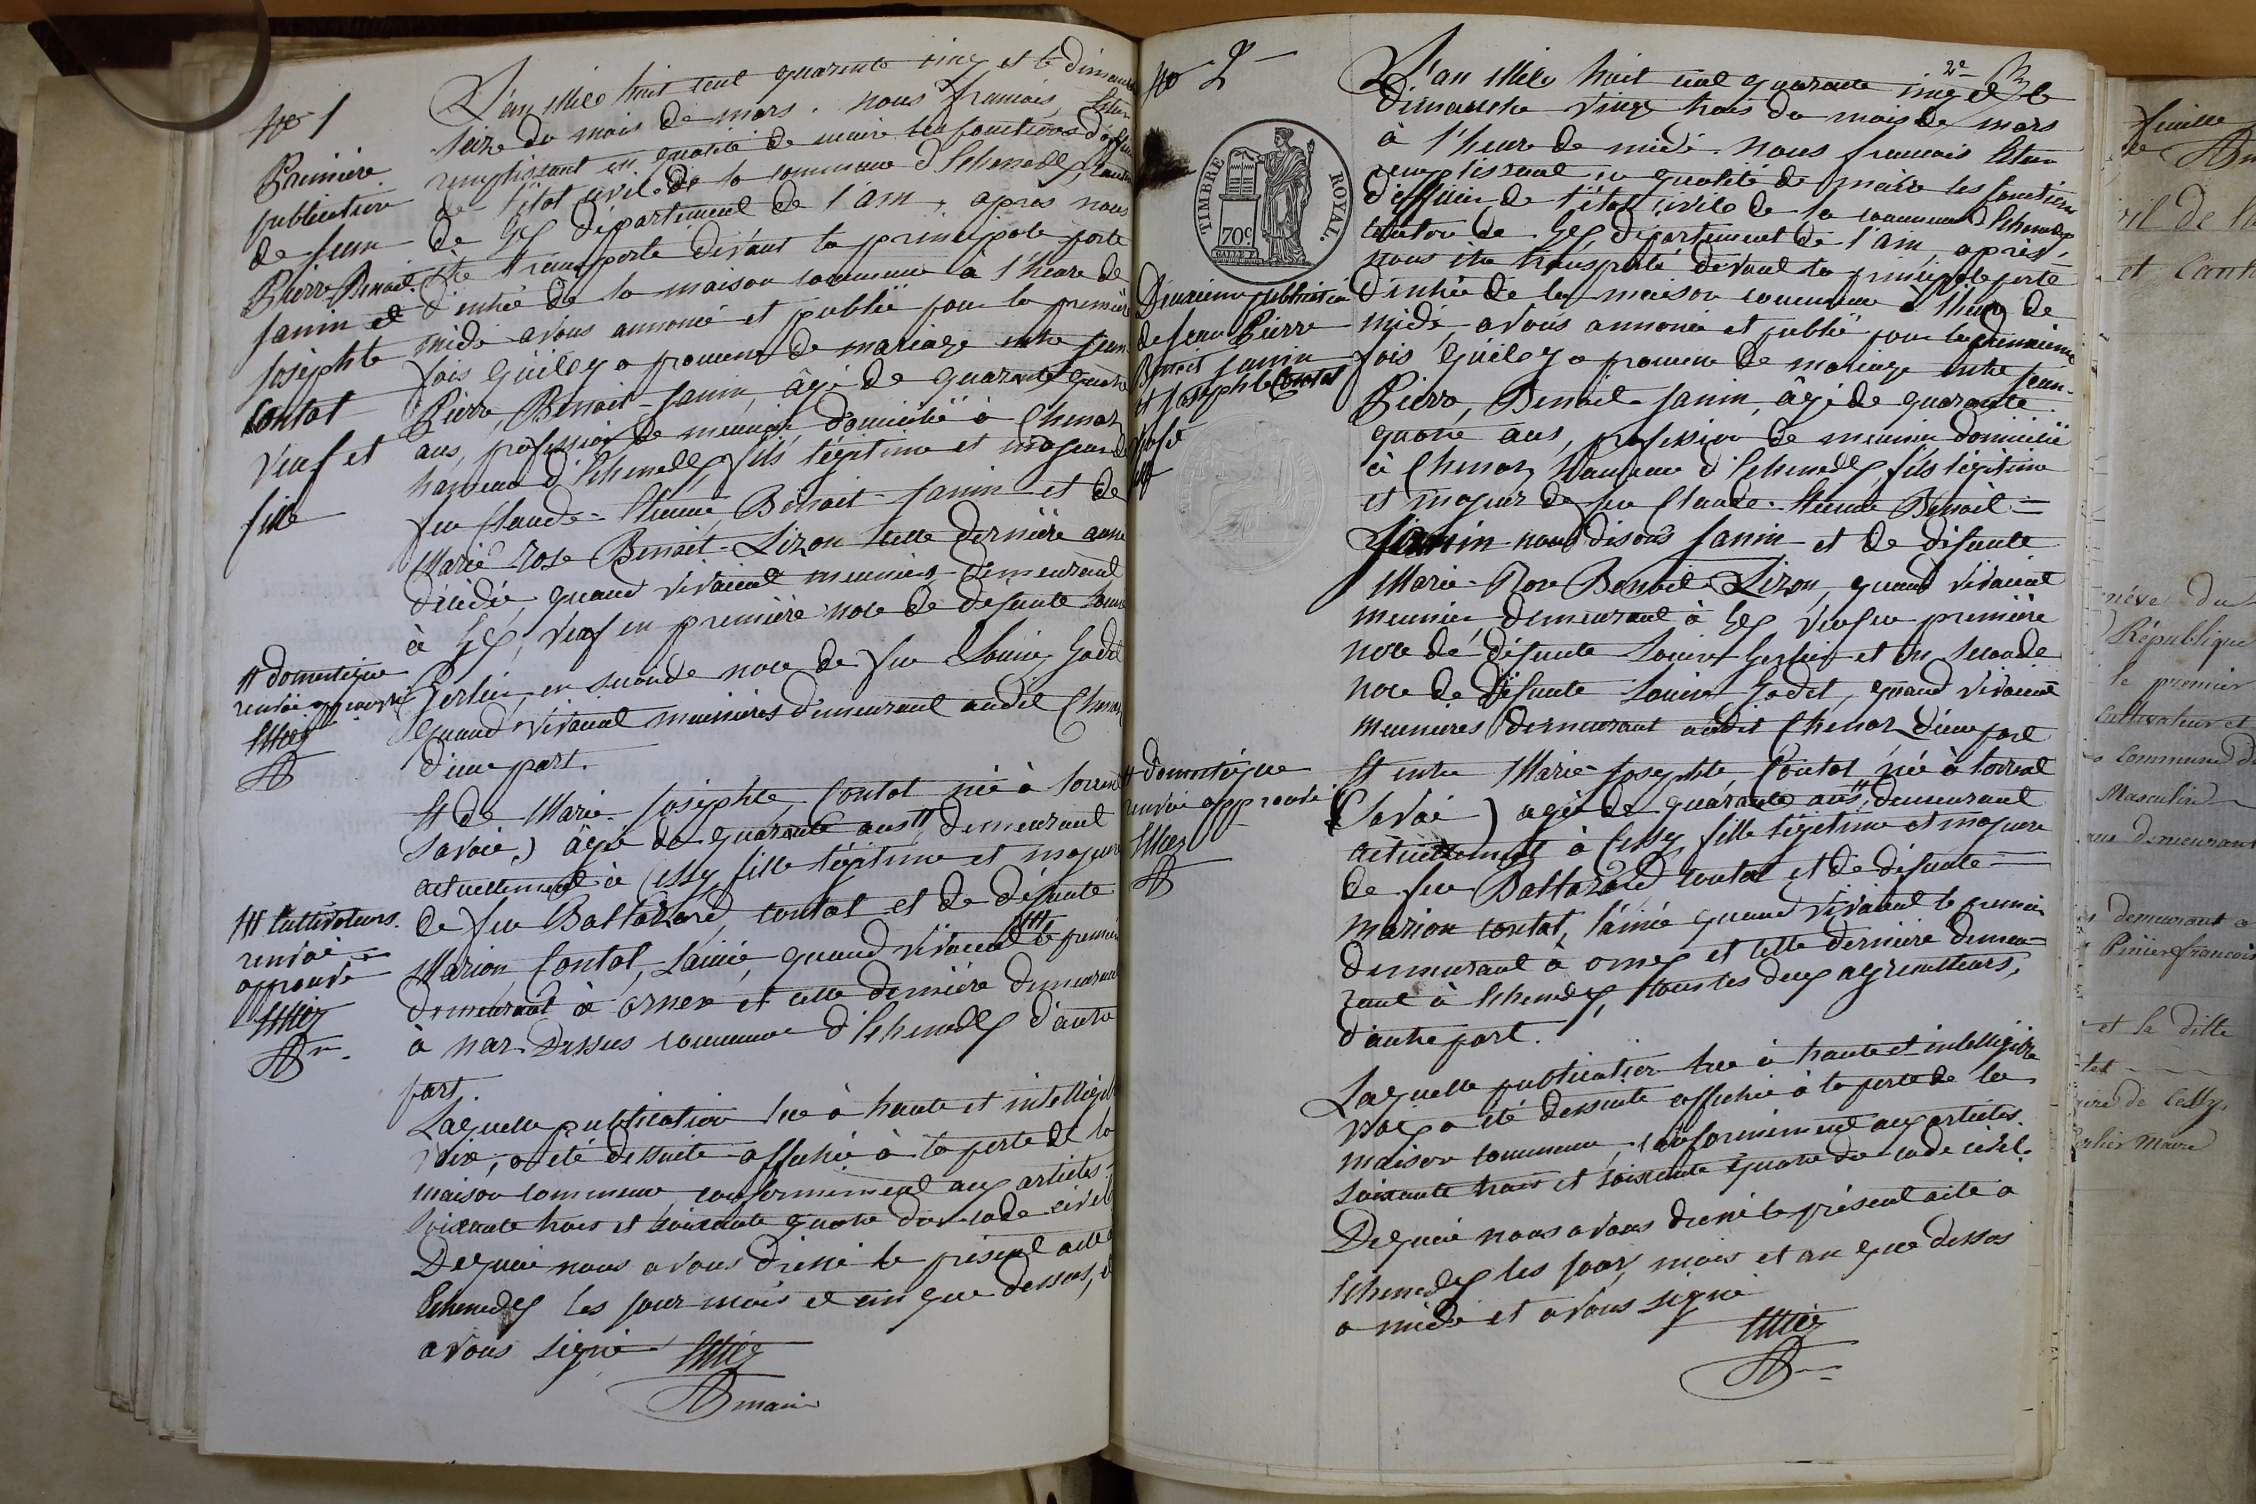 No 1
Première
publication
de Jean
Pierre Benoit
Janin et
Josephte
Contat
veuf et
fille
L'an Mile huit cent quarante cinq et le dimanche
seize du mois de mars. nous francois
remplissant en qualité de maire les fonctions d'officier
de l'état civil de la commune d'Echenevex, canton
de Gex département de l'ain, apres nous
être transporté devant la principale porte
d'entrée de la maison commune à l'heure de
midi avons annoncé et publié pour la premiere
fois qu'il y a promesse de mariage entre Jean
Pierre, Benoit-Janin, âgé de quarante quatre
ans, profession de meunier, domicilié à Chenaz
hameau d'Echenevex, fils légitime et majeur de
feu Claude-Etienne, Benoit-Janin et de
Marie rose Benoit-Lizon cette dernière aussi
décédée, quand vivaient meuniers demeurant
à Gex, veuf en première noce de defunte Louise
Gerlier, en seconde noce de feu Louise Godet
quand vivaient meunières demeurant audit Chenaz
d'une part.
# domestique
renvoi approuvé
Et de Marie-Josephte, Contat née à
Savoie,) âgée de quarante ans #, demeurant
actuellement à Cessy fille légitime et majeure
de feu Baltazard, contat et de défunte
Marion, Contat, l'ainée, quand vivaient ## le premier
demeurant à ornex et cette dernière demeurant
à naz-Dessus commune d'Echenevex d'autre
part
## Cultivateurs.
renvoi
approuvé
Laquelle publication lue à haute et intelligible
voix, a été de suite affichée à la porte de la
maison commune, conformément aux articles
soixante trois et soixante quatre du code civil
De quoi nous avons dressé le présent acte à
Echenevex les jour mois et an que dessus, et
avons signé
maire
No 2
2e
TIMBRE ROYAL.
70c
Deuxieme publication
de Jean Pierre
Benoit Janin
et Josephte Contat
L'an Mile huit cent quarante cinq et le
dimanche vingt trois du mois de mars
à l'heure de midi. Nous francois
remplissant en qualité de maire les fonctions
d'officier de l'état civil de la commune d'Echenevex
canton de Gex département de l'ain après,
nous être transporté devant la principale porte
d'entrée de la maison commune à l'heure de
midi, avons annoncé et publié pour la deuxieme
fois qu'il y a promesse de mariage entre Jean-
Pierre, Benoit-Janin, âgé de quarante
quatre ans, profession de meunier domicilié
à Chenaz hameau d'Echenevex, fils légitime
et majeur de feu Claude-Etienne Benoit=
Janin nous disons Janin et de defunte
Marie-Rose Benoit-Lizon, quand vivaient
meunier demeurant à Gex veuf en première
noce de défunte Louise Gerlier et en seconde
noce de défunte Louise Godet, quand vivaient
meunieres demeurant audit Chenaz d'une part
# domestique
renvoi approuvé
Et entre Marie-Josephte, Contat, née à
(Savoie) agée de quarante ans #, demeurant
actuellement à Cessy, fille légitime et majeure
de feu Baltazard contat et de défunte=
Marion contat, l'ainée quand vivaient le premier
demeurant à ornex et cette derniere demeu=
rant à Echenevex, tous les deux agriculteurs,
d'autre part.
Laquelle publication lue à haute et intelligible
voix, a été de suite affichée à la porte de la
maison commune, conformément aux articles
soixante trois et soixante quatre du code civil.
De quoi nous avons dressé le présent acte a
Echenevex les jour, mois et an que dessus
a midi et avons signé
feuille
et Cant
République
le premier
Cultivateur et
commune d
Masculin
demeurant
demeurant a
Pierre francois
et la ditte
de Cessy.
Maire